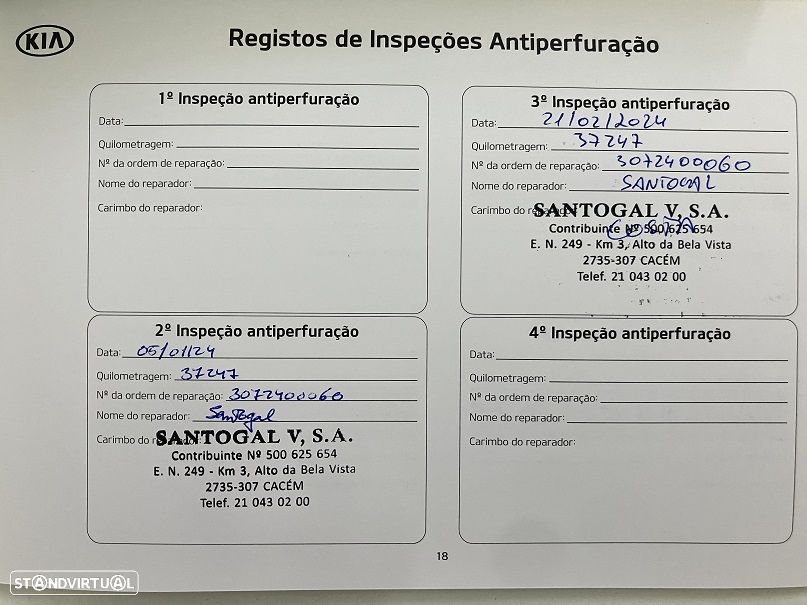 KIA
Registos de Inspeções Antiperfuração
1º Inspeção antiperfuração
Data:
Quilometragem:
Nº da ordem de reparação:
Nome do reparador:
Carimbo do reparador:
2º Inspeção antiperfuração
Data: 05/01/24
Quilometragem: 37247
Nº da ordem de reparação: 3072400060
Nome do reparador: Santogal
Carimbo do reparador:
SANTOGAL V, S.A.
Contribuinte Nº 500 625 654
E. N. 249 - Km 3, Alto da Bela Vista
2735-307 CACÉM
Telef. 21 043 02 00
3º Inspeção antiperfuração
Data: 21/02/2024
Quilometragem: 37247
Nº da ordem de reparação: 3072400060
Nome do reparador: SANTOGAL
Carimbo do reparador:
SANTOGAL V, S.A.
Contribuinte Nº 500 625 654
E. N. 249 - Km 3, Alto da Bela Vista
2735-307 CACÉM
Telef. 21 043 02 00
4º Inspeção antiperfuração
Data:
Quilometragem:
Nº da ordem de reparação:
Nome do reparador:
Carimbo do reparador:
18
STANDVIRTUAL